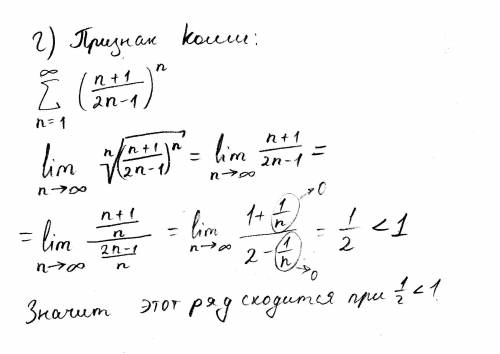 2) Признак Коши:
∞ ∑ n=1 ((n+1)/(2n-1))^n
lim n→∞ ⁿ√(((n+1)/(2n-1))^n) = lim n→∞ (n+1)/(2n-1) =
= lim n→∞ ((n+1)/n)/((2n-1)/n) = lim n→∞ (1+1/n →0)/(2-1/n →0) = 1/2 < 1
Значит этот ряд сходится при 1/2 < 1